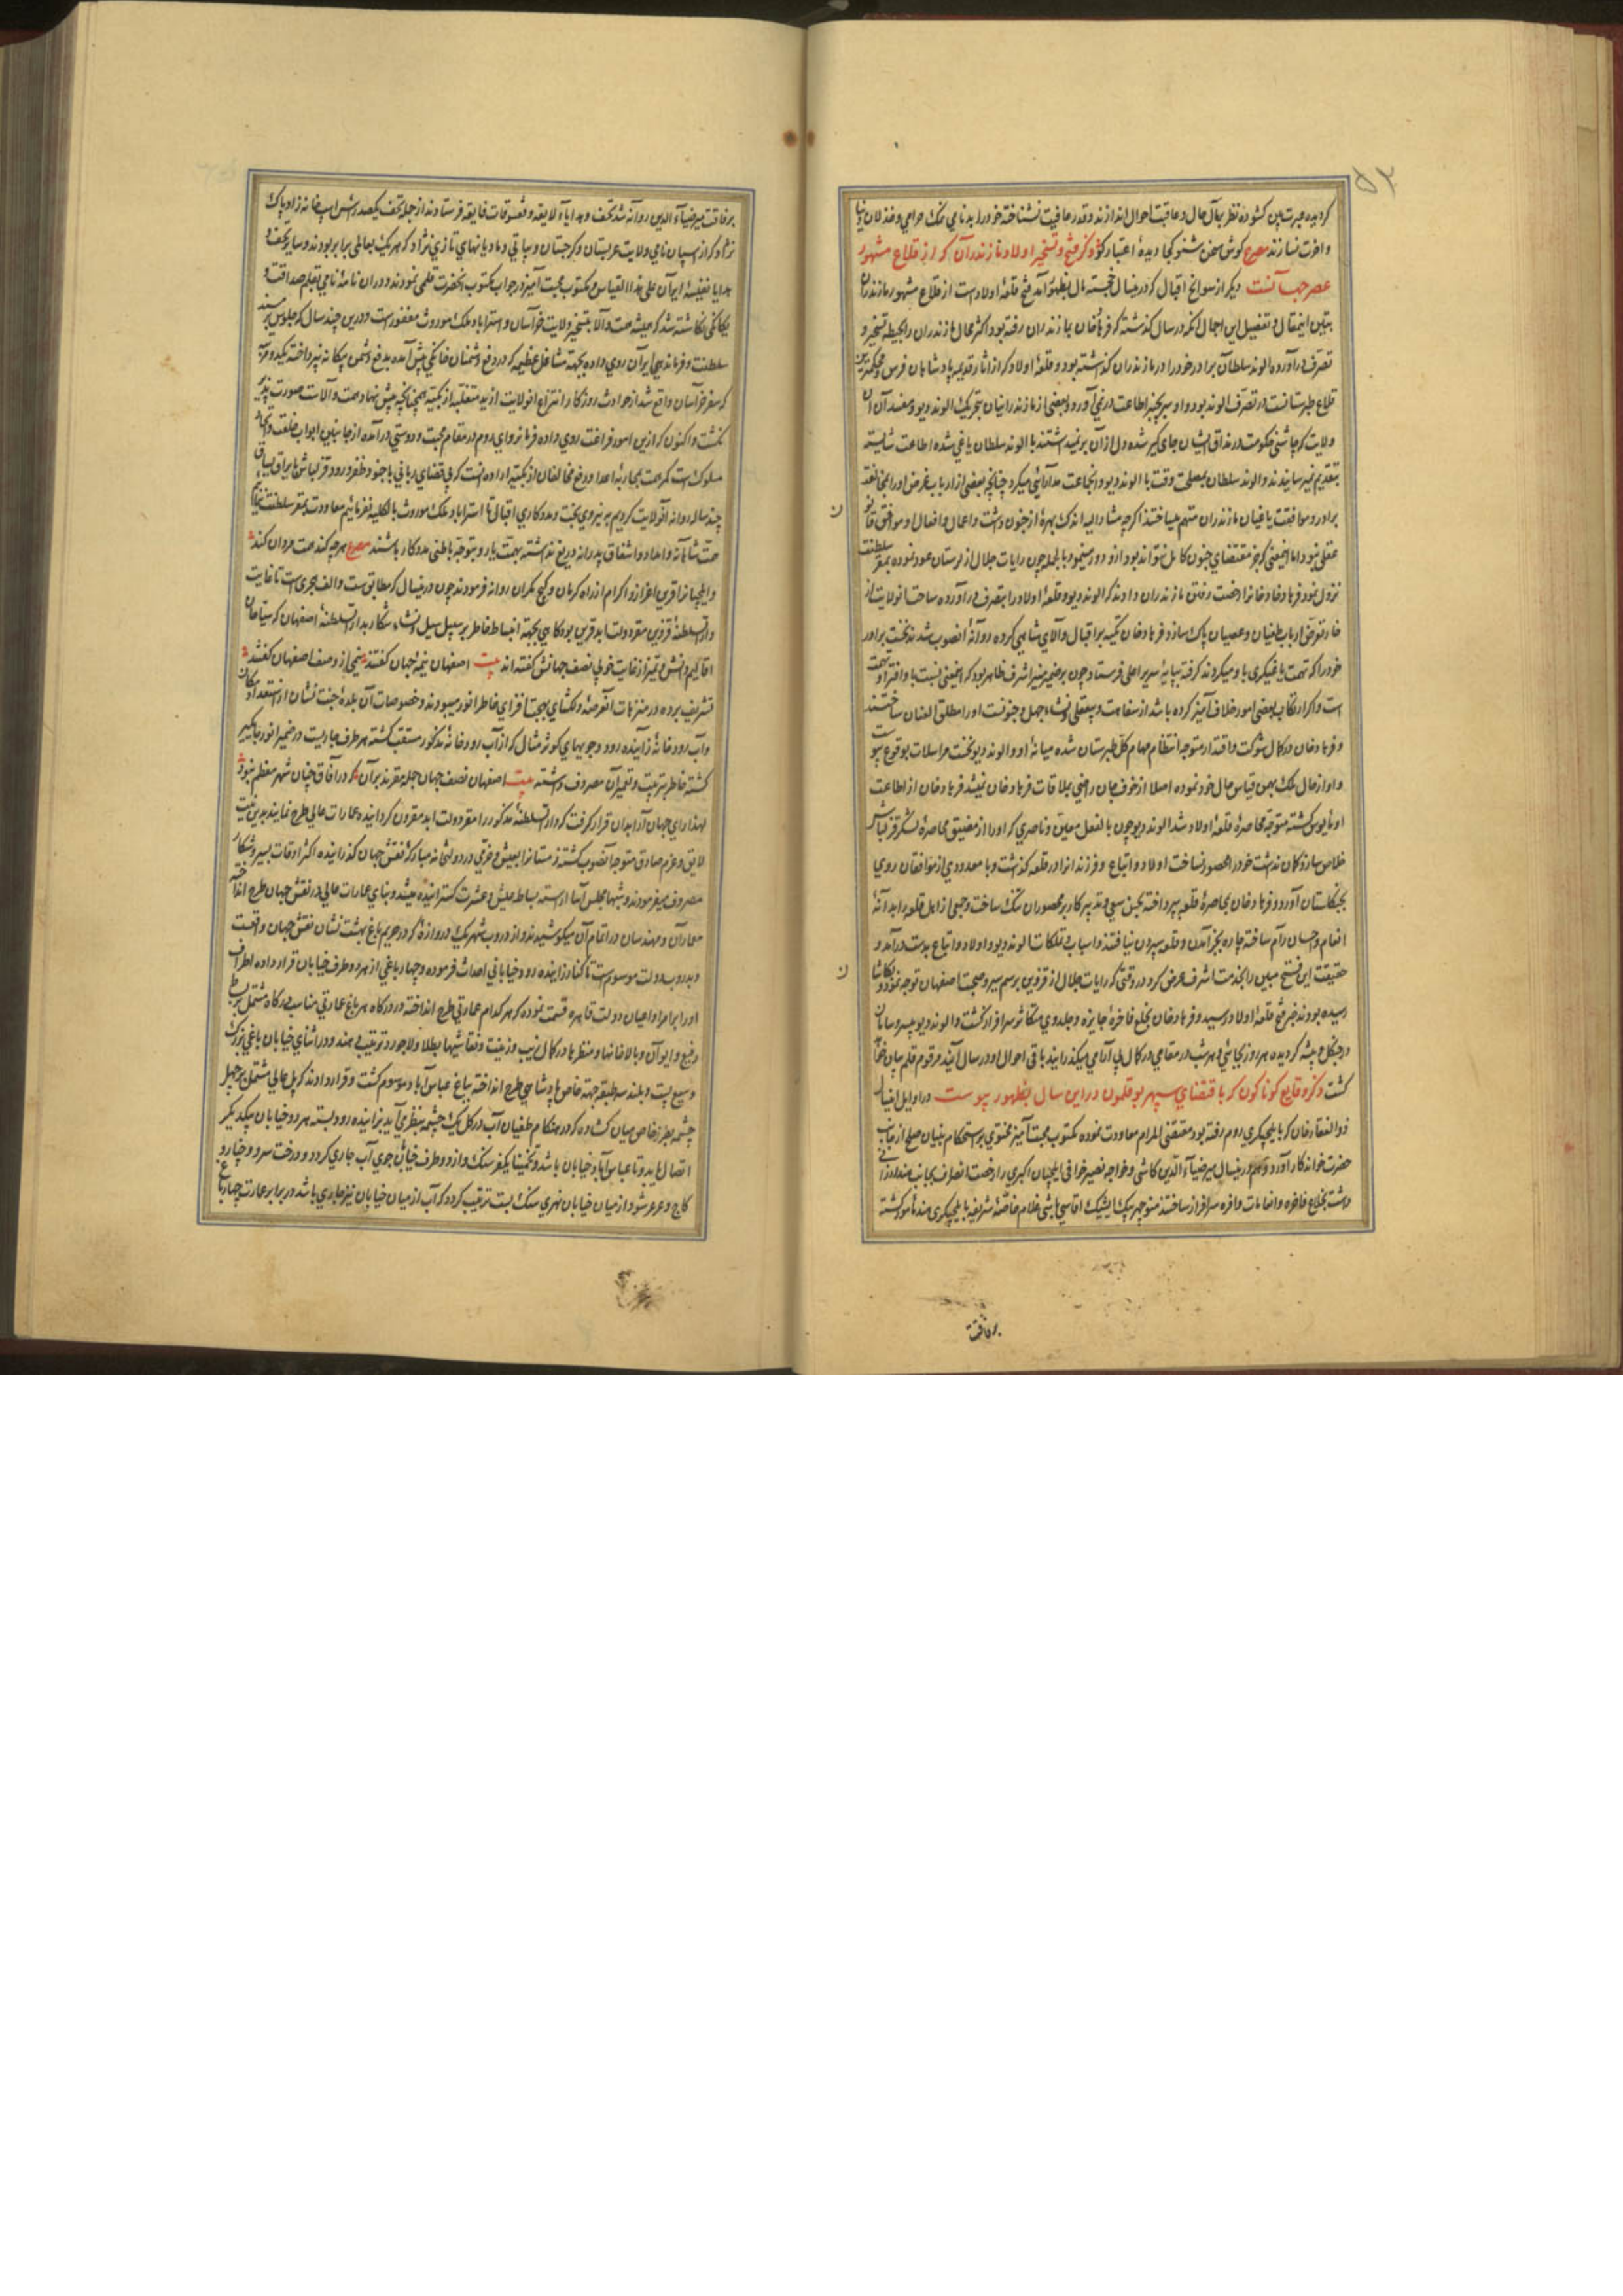 ۵۳
کردیده عبرت بین کشوده نظر بمآل حال و عاقبت احوال اندازند و قدر عافیت نشناخته خود را بدنامی نمک حرامی و خذلان دنیا
و آخرت نسازند مصرع کوش سخن شنو کجا دیدهٔ اعتبار کو ذکر فتح و تسخیر اولاد مازندران که از قلاع مشهور
دیکر از سوانح اقبال که درینسال خجسته مال بظهور آمد فتح قلعهٔ اولاد است از قلاع مشهور مازندران
تبیین اینمقال و تفصیل این اجمال آنکه در سال کذشته که فرهاد خان بمازندران رفته بود و اکثر محال مازندران را بحیطه تسخیر و
تصرف درآورده الوند سلطان برادر خود را در مازندران کذاشته بود و قلعهٔ اولاد که از آثار قدیمه پادشاهان فرس و محکمترین
قلاع طبرستانست در تصرف الوند بود و او سر بچنبر اطاعت در نمی آورد و بعضی از مازندرانیان بتحریک الوند دیو و مفسد آن
ولایت که چاشنی حکومت در مذاق ایشان جای کیر شده دل از آن بر نمیداشتند با الوند سلطان یاغی شده اطاعت شایسته
بتقدیم نمیرسانیدند و الوند سلطان بمصلحت وقت با الوند دیو و آنجماعت مدارائی میکرد چنانچه بعضی از ارباب غرض او را بمخالفت
برادر و موافقت یاغیان مازندران متهم میساختند اکرچه مشار الیه اندک بهرهٔ از جنون داشت و اعمال و افعال او موافق قانون
عقلی نبود اما اینمعنی که جز مقتضای جنون کامل نتواند بود ازو دور مینمود بالجمله چون رایات جلال از لرستان عود نموده بمقر سلطنت
نزول نمود فرهاد خان را رخصت رفتن مازندران دادند که الوند دیو و قلعهٔ اولاد را بتصرف درآورده ساحت آنولایت از
خار تعرض ارباب طغیان و عصیان پاک سازد فرهاد خان تکیه بر اقبال والای شاهی کرده روانهٔ آنصوب شد نخست برادر
خود را که تهمت یاغیکری باو میکردند کرفته بپایهٔ سریر اعلی فرستاد چون بر ضمیر منیر اشرف ظاهر بود که اینمعنی نسبت باو افترا و تهمت
است و اکر ارتکاب بعضی امور خلاف آمیز کرده باشد از سفاهت و بیعقلی و نشاء جهل و جنونست او را مطلق العنان ساختند
و فرهاد خان در کمال شوکت و اقتدار متوجه انتظام مهام کل طبرستان شده میانهٔ او و الوند دیو نخست مراسلات بوقوع پیوست
و او از حال ملک بهمن قیاس حال خود نموده اصلا از خوف جان راضی بملاقات فرهاد خان نمیشد فرهاد خان از اطاعت
او مأیوس کشته متوجه محاصرهٔ قلعهٔ اولاد شد الوند دیو چون بالفعل معین و ناصری که او را از مضیق محاصرهٔ لشکر قزلباش
خلاص سازد کمان نداشت خود را محصور نساخت اولاد و اتباع و فرزندانرا در قلعه کذاشت و با معدودی از موافقان روی
بجنکلستان آورد و فرهاد خان بمحاصرهٔ قلعه پرداخته بحسن سعی و تدبیر کار بر محصوران تنک ساخت و جمعی از اهل قلعه را بدانهٔ
انعام و احسان رام ساخته چاره بجز آمدن و قلعه سپردن نیافتند و اسباب و تملکات الوند دیو و اولاد و اتباع بدست درآمد و
حقیقت این فتح مبین را بخدمت اشرف عرض کرد در وقتی که رایات جلال از قزوین برسم سیر و صحبت اصفهان توجه نموده و بکاشان
رسیده بودند خبر فتح قلعهٔ اولاد رسید و فرهاد خان بخلع فاخره و جایزه و جلدوی متکاثر سرافراز کشت و الوند دیو بی سر و سامان
در جنکل و بیشه کردیده هر روز بجائی و هر شب در مقامی در کمال بی آرامی میکذرانید باقی احوال او در سال آینده مرقوم قلم بیان خواهد
کشت ذکر وقایع کوناکون که باقتضای سپهر بوقلمون در این سال بظهور پیوست در اوایل اینسال
ذوالفقار خان که بایلچیکری روم رفته بود مقضی المرام معاودت نموده مکتوب محبت آمیز محتوی بر استحکام بنیان صلح از جانب
حضرت خواندکار آورد و هم درینسال میر ضیاء الدین کاشی و خواجه نصیر خوافی ایلچیان اکبری را رخصت انصراف بجانب هند ارزانی
داشته بخلاع فاخره و انعامات وافره سرافراز ساختند منوچهر بیک ایشیک اقاسی باشی غلام خاصهٔ شریفه بایلچیکری هند مأمور کشته
برفاقت
برفاقت میر ضیاء الدین روانه شد تحف و هدایاء لایقه و تنسوقات فایقه فرستادند از جمله تحف یکصد رأس اسب خانه زاد پاک
نژاد که از اسپان نامی ولایت عربستان و کرجستان و بیاتی و مادیانهای تازی نژاد که هر یک بعالمی برابر بودند و سایر تحف و
هدایا نفیسهٔ ایران علی هذا القیاس و مکتوب محبت آمیز در جواب مکتوب آنحضرت قلمی نمودند و در آن نامهٔ نامی بقلم صداقت و
یکانکی نکاشته شد که همیشه همت والا بتسخیر ولایت خراسان و استرداد ملک موروث مصروفست و درین چند سال که جلوس بر مسند
سلطنت و فرماندهی ایران روی داده بجهة مشاغل عظیمه که در دفع دشمنان خانکی پیش آمده بدفع دشمن بیکانه نپرداخته یکدو مرتبه
که سفر خراسان واقع شد از حوادث روزکار انتزاع آنولایت از ید متغلبه ازبکیه چنانچه پیش نهاد همت والاست صورت پذیر
نکشت و اکنون که ازین امور فراغت روی داده فرمانروای روم در مقام محبت و دوستی درآمده از جانبین ابواب خلعت و تحف
مسلوکست کمر همت بمحاربهٔ اعدا و دفع مخالفان ازبکیه اراده آنست که بی قضای ربانی با جنود ظفر ورود قزلباش با یراق یساق
چند ساله روانه آنولایت کردیم به نیروی بخت و مددکاری اقبال تا استرداد ملک موروث بالکلیه نفرمائیم معاودت بمقر سلطنت ننمائیم
همت شاهانه و امداد و اشفاق پدرانه دریغ نداشته بهمت یار و بتوجه باطنی مددکار باشند مصرع هر چه کند همت مردان کند
و ایلچیانرا قرین اعزاز و اکرام از راه کرمان و کیج مکران روانه فرمودند چون درینسال که مطابق ست و الف هجری است تا غایت
دار السلطنهٔ قزوین مقر دولت ابد قرین بود کاهی بجهة انبساط خاطر بر سبیل سیل و نشاء شکار بدار السلطنهٔ اصفهان که سیاحان
اقالیم دانش و تمیز از غایت خوبی نصف جهانش کفته اند بیت اصفهان نیمهٔ جهان کفتند نیمی از وصف اصفهان کفتند
تشریف برده در منزهات آنعرصهٔ دلکشای بهجت افزای خاطر انور میبودند و خصوصیات آن بلدهٔ جنت نشان از استعداد مکان
و آب رودخانهٔ زاینده رود و جویهای کوثر مثال که از آب رودخانهٔ مذکور منشعب کشته بهر طرف جاریست در ضمیر انور جایکیر
کشته خاطر بتربیت و تعمیر آن مصروف داشته بیت اصفهان نصف جهان جمله مقرند بر آن که در آفاق چنان شهر معظم نبود
لهذا رای جهان آرا بدان قرار کرفت که دار السلطنهٔ مذکور را مقر دولت ابد مقرون کردانیده عمارات عالی طرح نمایند بدین نیت
لایق و عزم صادق متوجه آنصوب کشته زمستانرا بعیش و خرمی در دولتخانهٔ مبارکهٔ نقش جهان کذرانیده اکثر اوقات بسیر و شکار
مصروف میفرمودند و شبها مجلس آسا ارسته بساط عیش و عشرت کسترانیده میشد و بنای عمارات عالی در نقش جهان طرح انداخته
معماران و مهندسان در اتمام آن میکوشیدند و از دروب شهر یک دروازهٔ که در حریم باغ بهشت نشان نقش جهان واقعست
و بدروب دولت موسوم است تا کنار زاینده رود خیابانی احداث فرموده و چهار باغی از هر دو طرف خیابان قرار داده اطراف
او را بر امرا و اعیان دولت قاهره قسمت نموده که هر کدام عمارتی طرح انداخته در درکاه هر باغ عمارتی مناسب درکاه مشتمل بر ساباط
رفیع و ایوان و بالاخانها و منظرها در کمال زیب و زینت و نقاشیها بطلا و لاجورد ترتیب دهند و در انتهای خیابان باغی بزرک
وسیع پست و بلند سه طبقه جهة خاص پادشاهی طرح انداخته بباغ عباس آباد موسوم کشت و قرار دادند که پل عالی مشتمل بر چهل
چشمه بطرز خاص میان کشاده که در هنکام طغیان آب در کل یک چشمه بنظر می آید بر زاینده رود بسته هر دو خیابان بیکدیکر
اتصال یابد و تا عباس آباد خیابان باشد و تخمینا یکفرسنک و از دو طرف خیابان جوی آب جاری کردد و درخت سرو و چنار و
کاج و عرعر شود از میان خیابان نهری سنک بست ترتیب کردد که آب از میان خیابان نیز جاری باشد در برابر عمارت چهار باغ